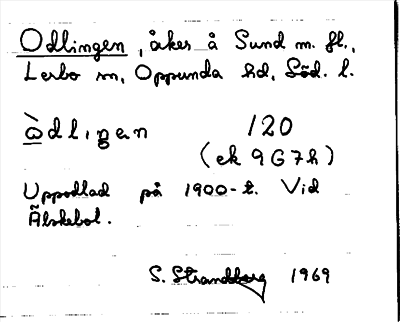 Odlingen, åker å Sund m. fl.,
Lerbo sn, Oppunda hd, Söd. l.
ὰdlıgen 120
(ek 9G7h)
Uppodlad på 1900-t. Vid
Älskebol.
S. Strandberg 1969